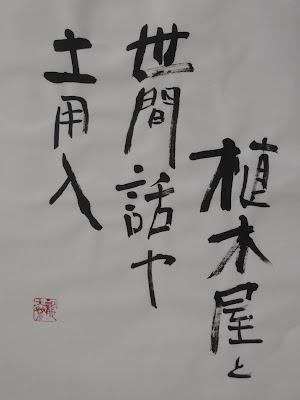 植木屋と
世間話や
土用入